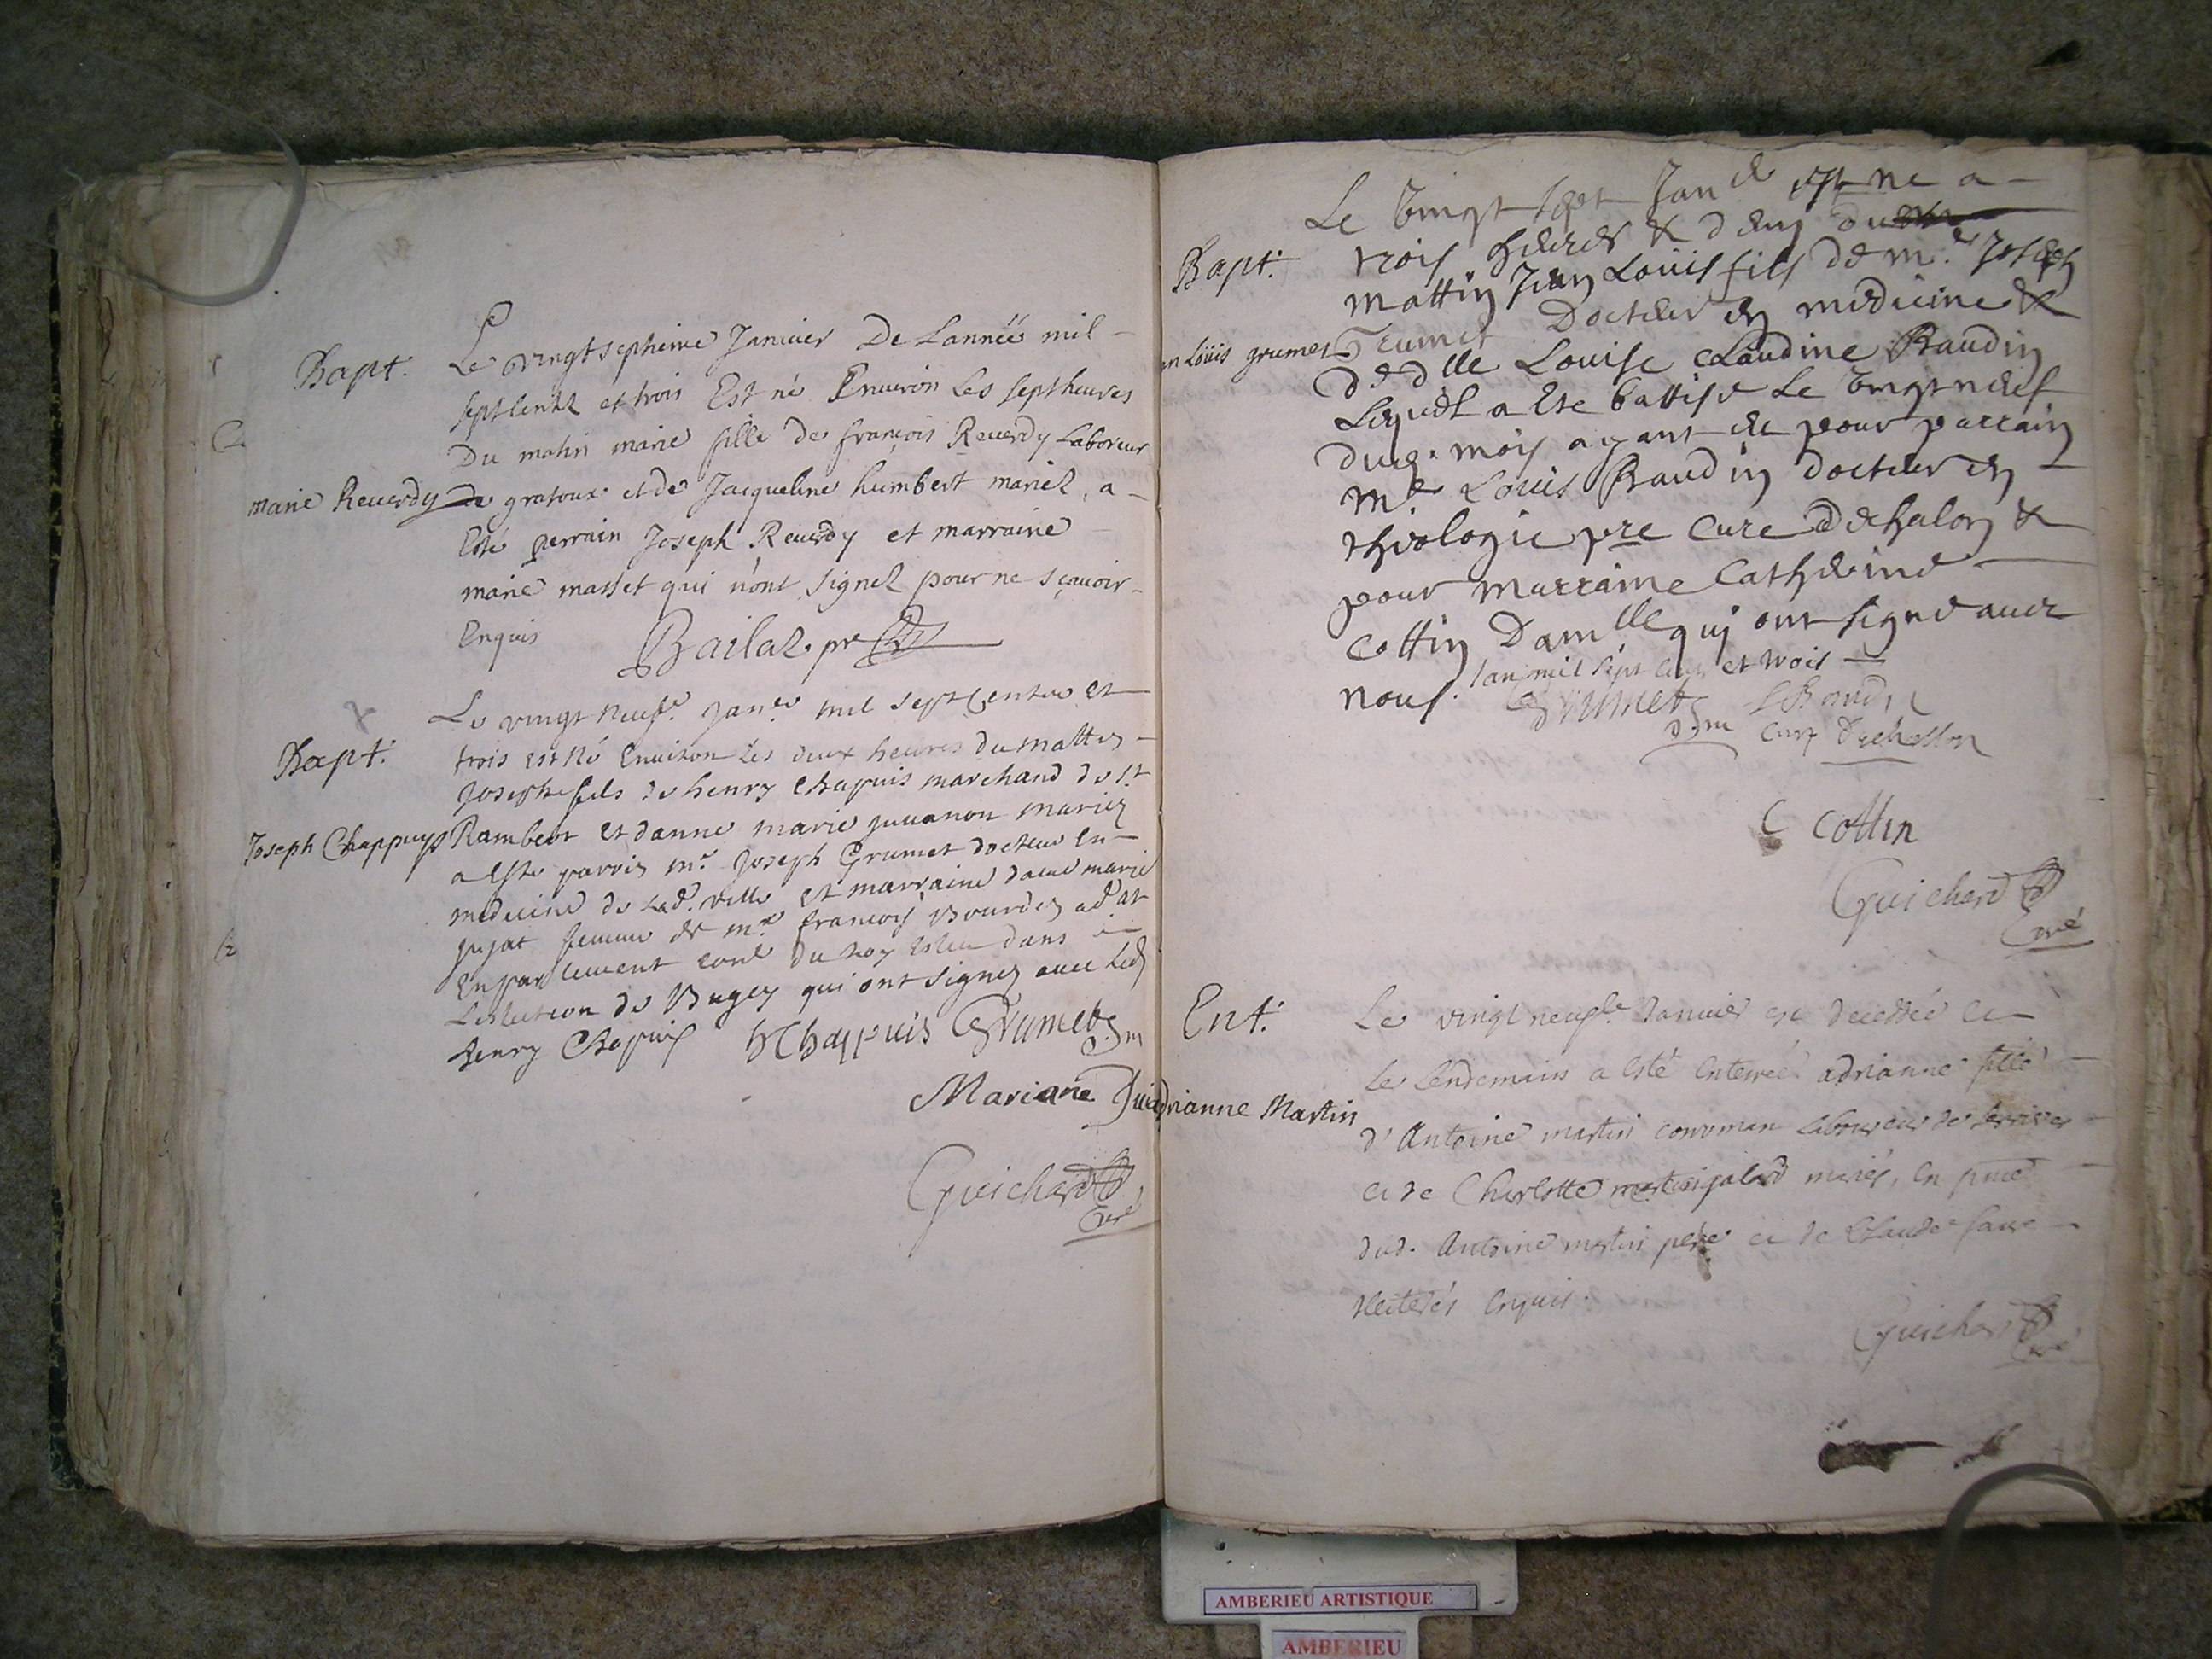 Bapt.
Le vingt septieme Janvier De Lannéé mil
septcentz et trois Est né Environ Les sept heures
Du matin marie fille de françois Reuerdy Laboreur
marie Reuerdy
de gratoux et de Jacqueline humbert mariez, a
Esté perrain Joseph Reuerdy et marraine
marie masset qui n'ont signez pour ne sçauoir
Enquis
Bailaz pre
Bapt.
Le vingt neufe. Janer mil sept Centz et
trois est Né Enuiron Les deux heures du mattin
Joseph fils de henry Chapuis marchand de st
Joseph Chappuys
Rambert et danne marie juuanon mariez
a Esté parrin mr. Joseph Grumet docteur en
medecine de lad. ville et marraine dame marie
jujat femme de mr. francois Bourdin adat
En parlement conl du Roy Esleu dans
Leslection de Bugey qui ont signez auec led
henry Chapuis
H Chappuis Grumet Dm
Mariane
Guichard
Curé
Le vingt sept Jan er est ne a
Bapt.
trois heures & demy du
mattin Jean Louis fils de mr. Joseph
an Loüis grumet
Grumet Docteur en medicine &
de dlle Louise Claudine Baudin
Lequel a ete battisé Le vingt neuf
dud. mois ayant eu pour parrain
mr Louis Baudin docteur en
theologie pre Cure &
pour marraine Catherine
Cottin Damlle qui ont signe auec
nous. lan mil sept cent et trois
Grumet Dm
LBaudin
Curé
C Cottin
Guichard
Curé
Ent.
Le vingt neufe Januier est decedée et
Le Lendemain a esté enterrée adrianne fille
adrianne Martin
d'Antoine martin Laboureur de
et de Charlotte mariés, en pnce
dud. Antoine martin pere et de Claude
illiterés enquis.
Guichard
Curé
AMBERIEU ARTISTIQUE
AMBERIEU